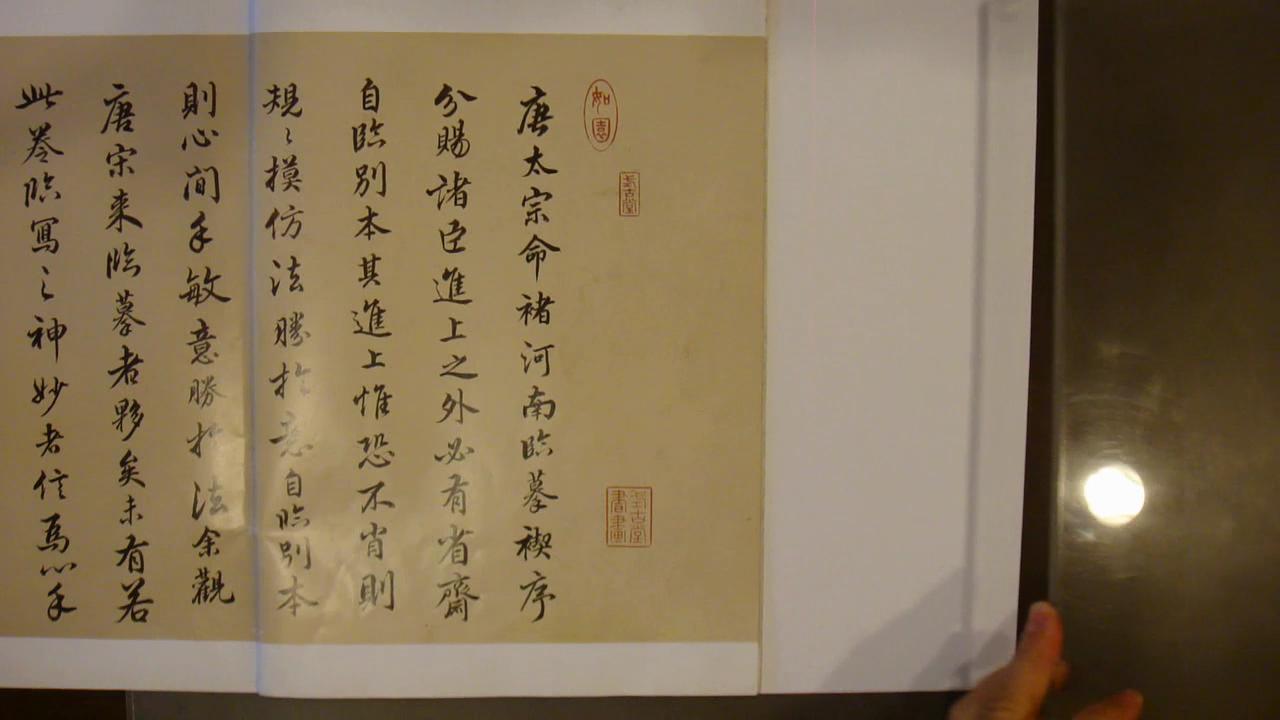 式古堂
式古堂書畫
唐太宗命褚河南臨摹禊序
分賜諸臣進上之外必有省齋
自臨別本其進上惟恐不肖則
規〻摸仿法勝扵意自臨別本
則心閒手敏意勝扵法余觀
唐宋来臨摹者夥矣未有若
此卷臨寫之神妙者信為心手